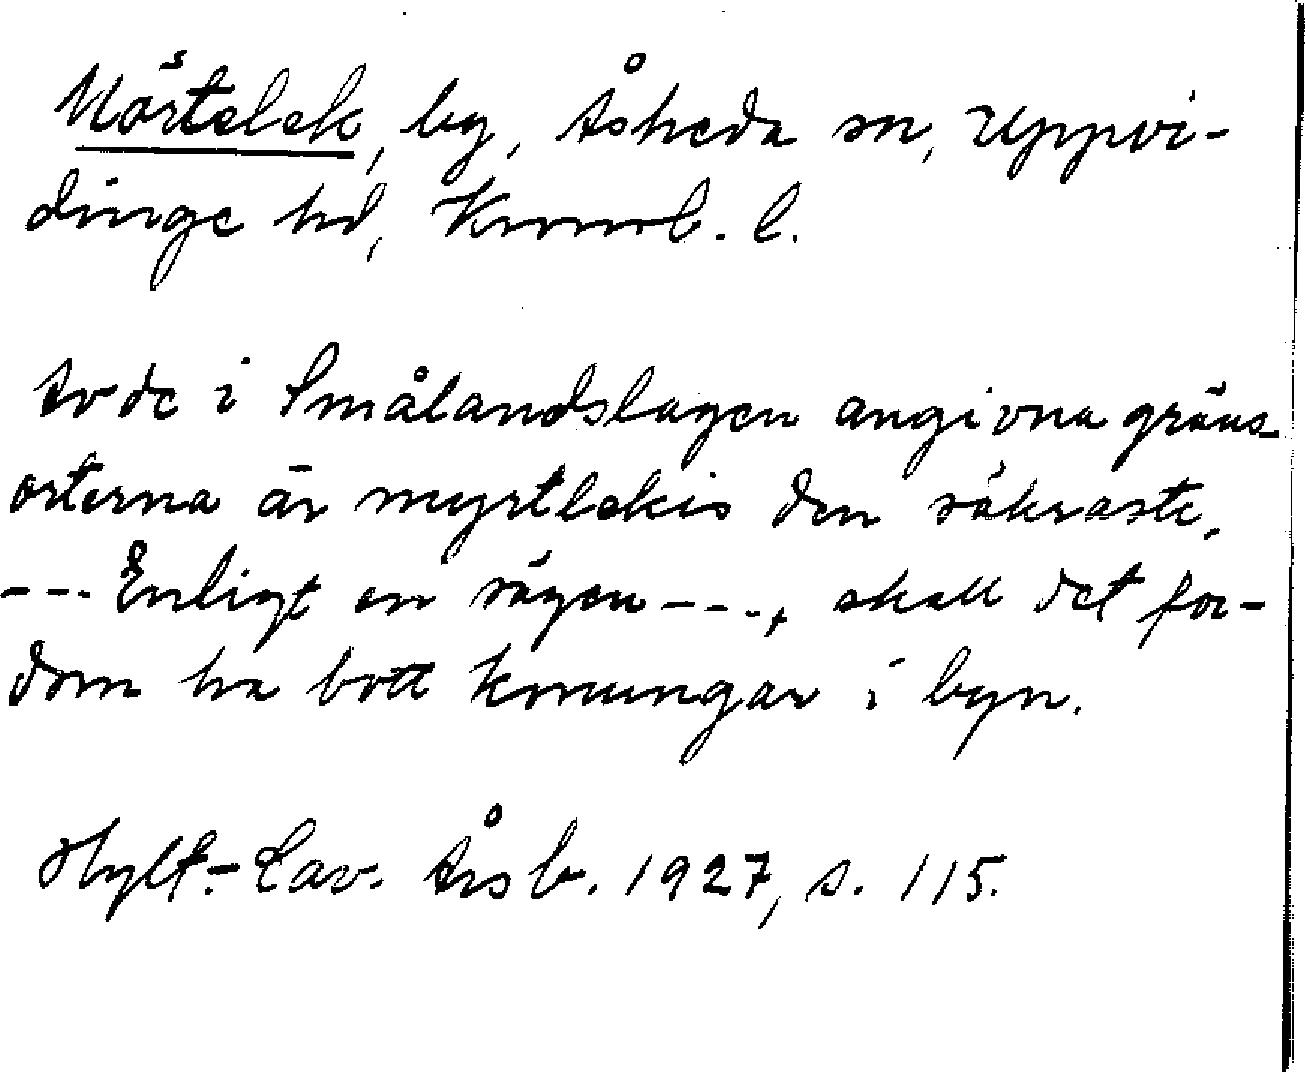 Mörtelek, by, Åsheda sn, Uppvi-
dinge hd, Kronob. l.
Av de i Smålandslagen angivna gräns-
orterna är myrtlekis den säkraste.
--- Enligt en sägen ---, skall det for-
dom ha bott konungar i byn.
Hylt.-Cav. Årsb. 1927, s. 115.